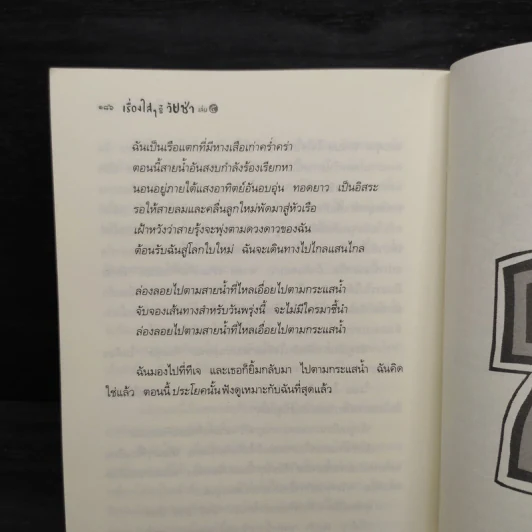 ๑๘๖ เรื่องใสๆ วัยซ่า เล่ม
ฉันเป็นเรือแตกที่มีหางเสือเก่าคร่ำคร่า
ตอนนี้สายน้ำอันสงบกำลังร้องเรียกหา
นอนอยู่ภายใต้แสงอาทิตย์อันอบอุ่น ทอดยาว เป็นอิสระ
รอให้สายลมและคลื่นลูกใหม่พัดมาสู่หัวเรือ
เฝ้าหวังว่าสายรุ้งจะพุ่งตามดวงดาวของฉัน
ต้อนรับฉันสู่โลกใบใหม่ ฉันจะเดินทางไปไกลแสนไกล
ล่องลอยไปตามสายน้ำที่ไหลเอื่อยไปตามกระแสน้ำ
จับจองเส้นทางสำหรับวันพรุ่งนี้ จะไม่มีใครมาชี้นำ
ล่องลอยไปตามสายน้ำที่ไหลเอื่อยไปตามกระแสน้ำ
ฉันมองไปที่ทีเจ และเธอก็ยิ้มกลับมา ไปตามกระแสน้ำ ฉันคิด
ใช่แล้ว ตอนนี้ประโยคนั้นฟังดูเหมาะกับฉันที่สุดแล้ว